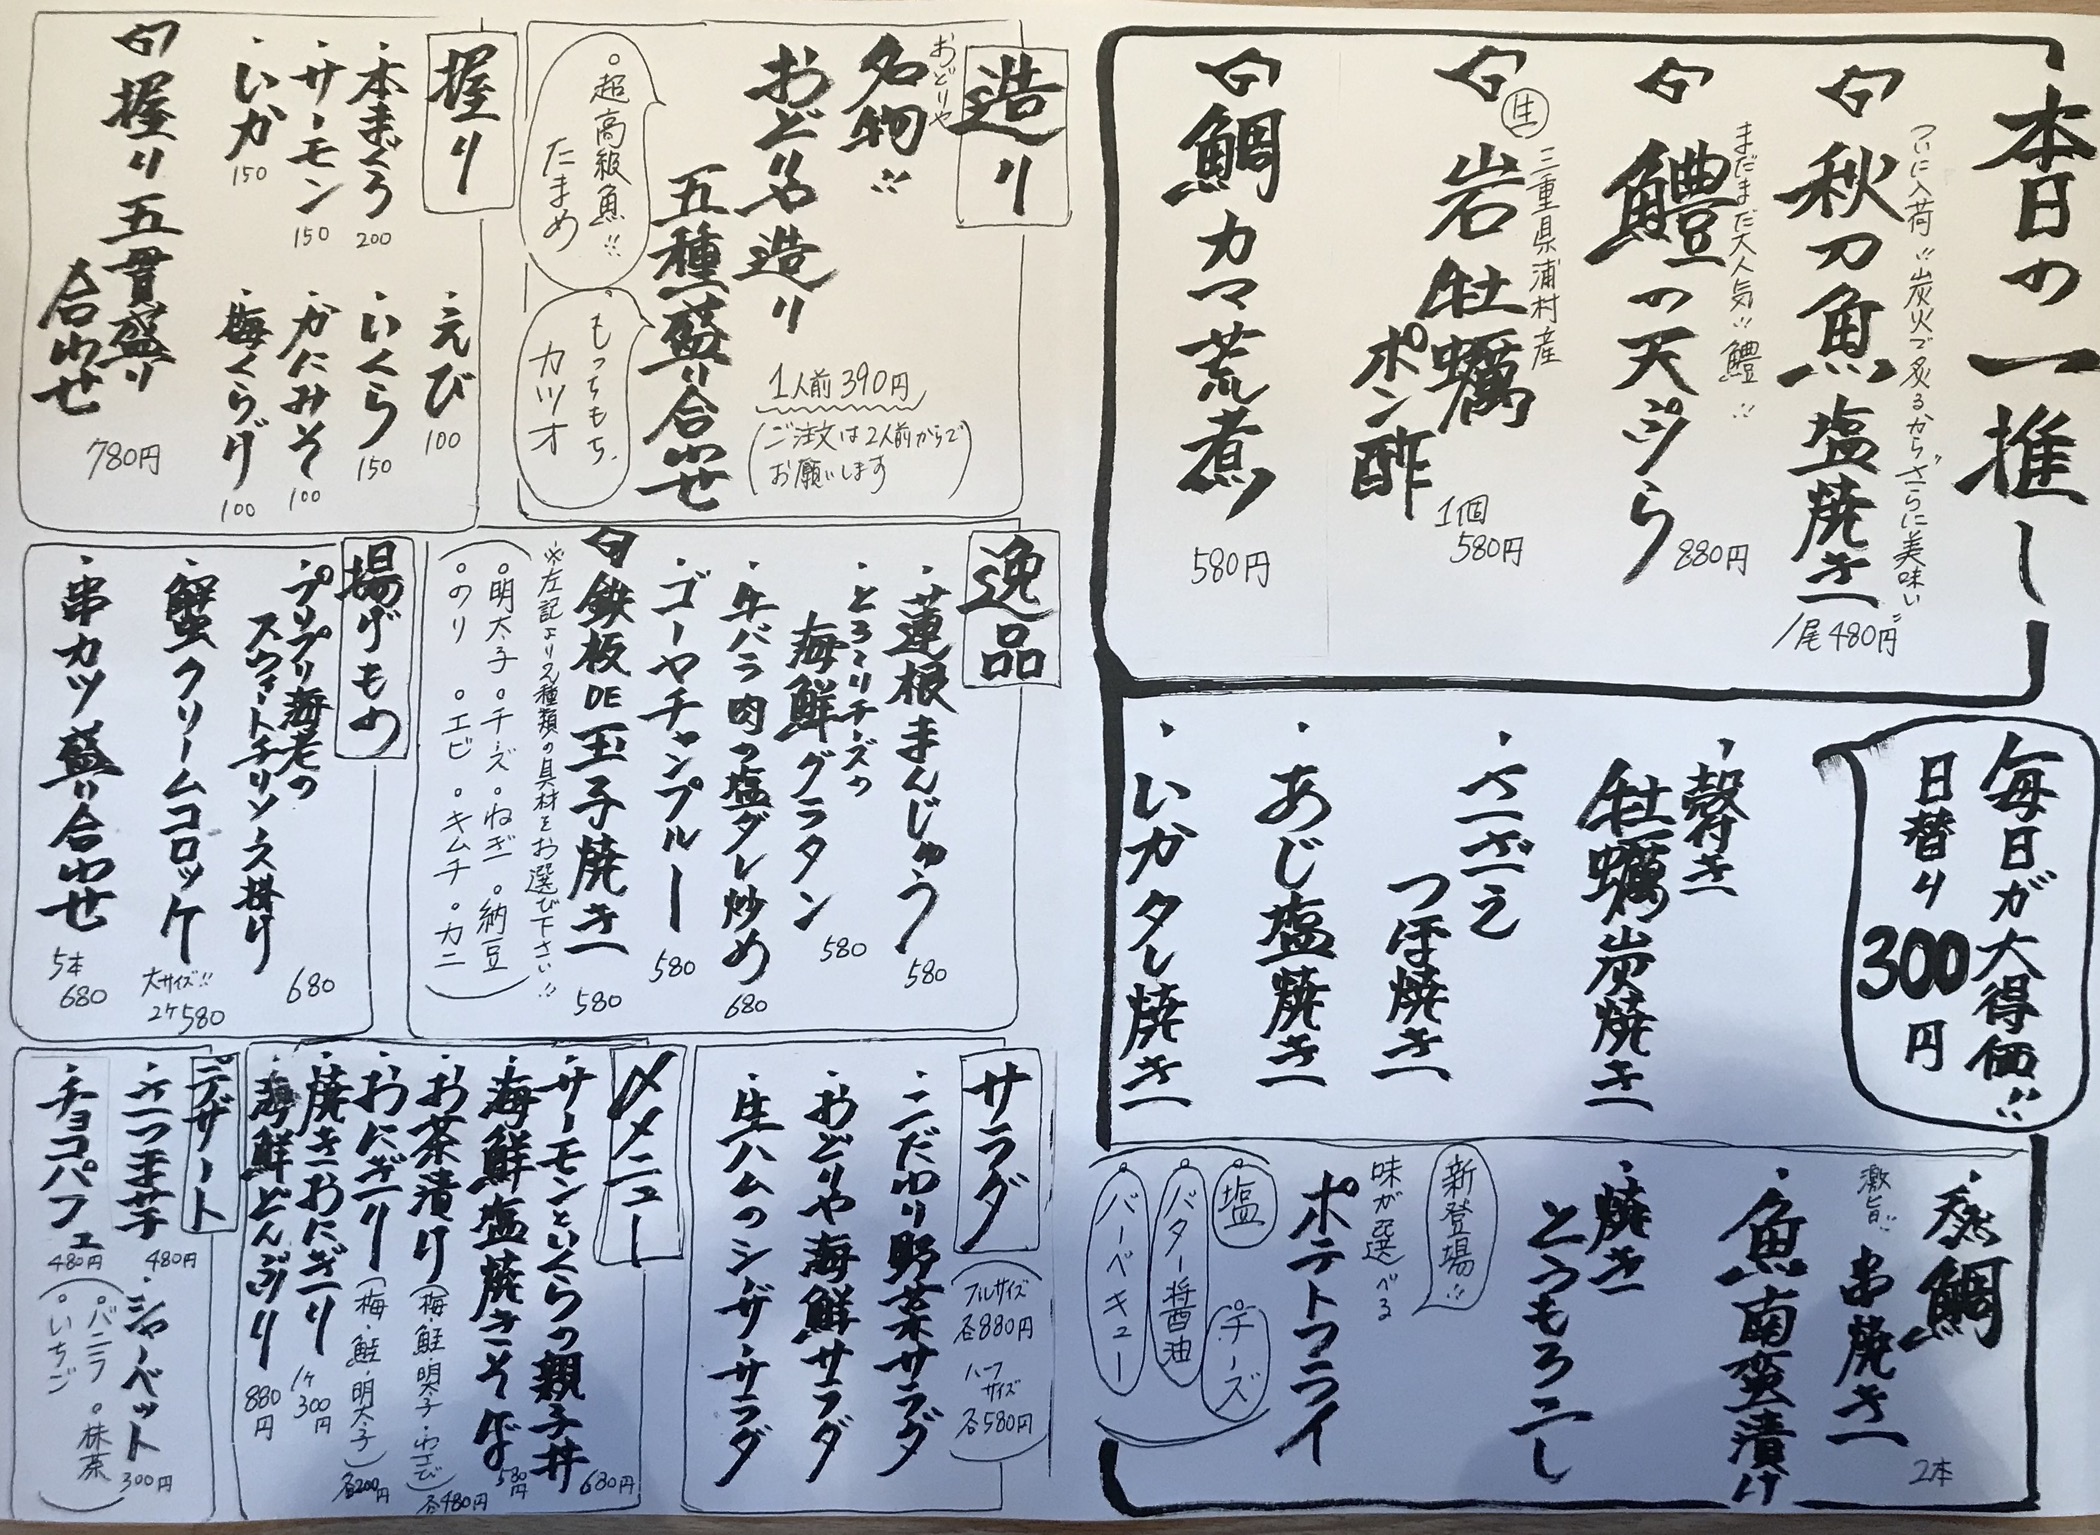 本日の一推し
ついに入荷!!炭火で炙るからざらに美味い
秋刀魚塩焼き
1尾480円
まだまだ大人気!!鱧!!
鱧の天ぷら
880円
生
三重県浦村産
岩牡蠣
ポン酢
1個
580円
鯛カマ荒煮
580円
毎日が大得価!!
日替り
300円
・殻付き
牡蠣炭焼き
・さざえ
つぼ焼き
・あじ塩焼き
・いかタレ焼き
・天然鯛
激旨!!
串焼き
2本
・魚南蛮漬け
・焼き
とうもろこし
新登場!!
味が選べる
ポテトフライ
塩
チーズ
バター醤油
バーベキュー
造り
おどりや
名物!!
おどりや造り
五種盛り合わせ
1人前390円
(ご注文は2人前からで
お願いします)
超高級魚!!
たまめ
もっちもち
カツオ
握り
・本まぐろ
200
・サーモン
150
・いか
150
・えび
100
・いくら
150
・かにみそ
100
・梅くらげ
100
握り五貫盛り
合わせ
780円
逸品
・蓮根まんじゅう
580
・とろ〜りチーズの
海鮮グラタン
580
・牛バラ肉の塩ダレ炒め
680
・ゴーヤチャンプルー
580
鉄板DE玉子焼き
580
※左記より2種類の具材をお選び下さい!!
(。明太子。チーズ。ねぎ。納豆
。のり。エビ。キムチ。カニ)
揚げもの
・プリプリ海老の
スウィートチリソース掛け
680
・蟹クリームコロッケ
大サイズ!!
2ケ580
・串カツ盛り合わせ
5本
680
サラダ
(フルサイズ
各880円
ハーフ
サイズ
各580円)
・こだわり野菜サラダ
・おどりや海鮮サラダ
・生ハムのシーザーサラダ
〆メニュー
・サーモンといくらの親子丼
680円
・海鮮塩焼きそば
580円
・お茶漬け
(梅・鮭・明太子・わさび)
各480円
・おにぎり
(梅・鮭・明太子)
各200円
・焼きおにぎり
1ケ
300円
・海鮮どんぶり
880円
デザート
・さつま芋
480円
・シャーベット
300円
・チョコパフェ
480円
(。バニラ。抹茶
。いちご)